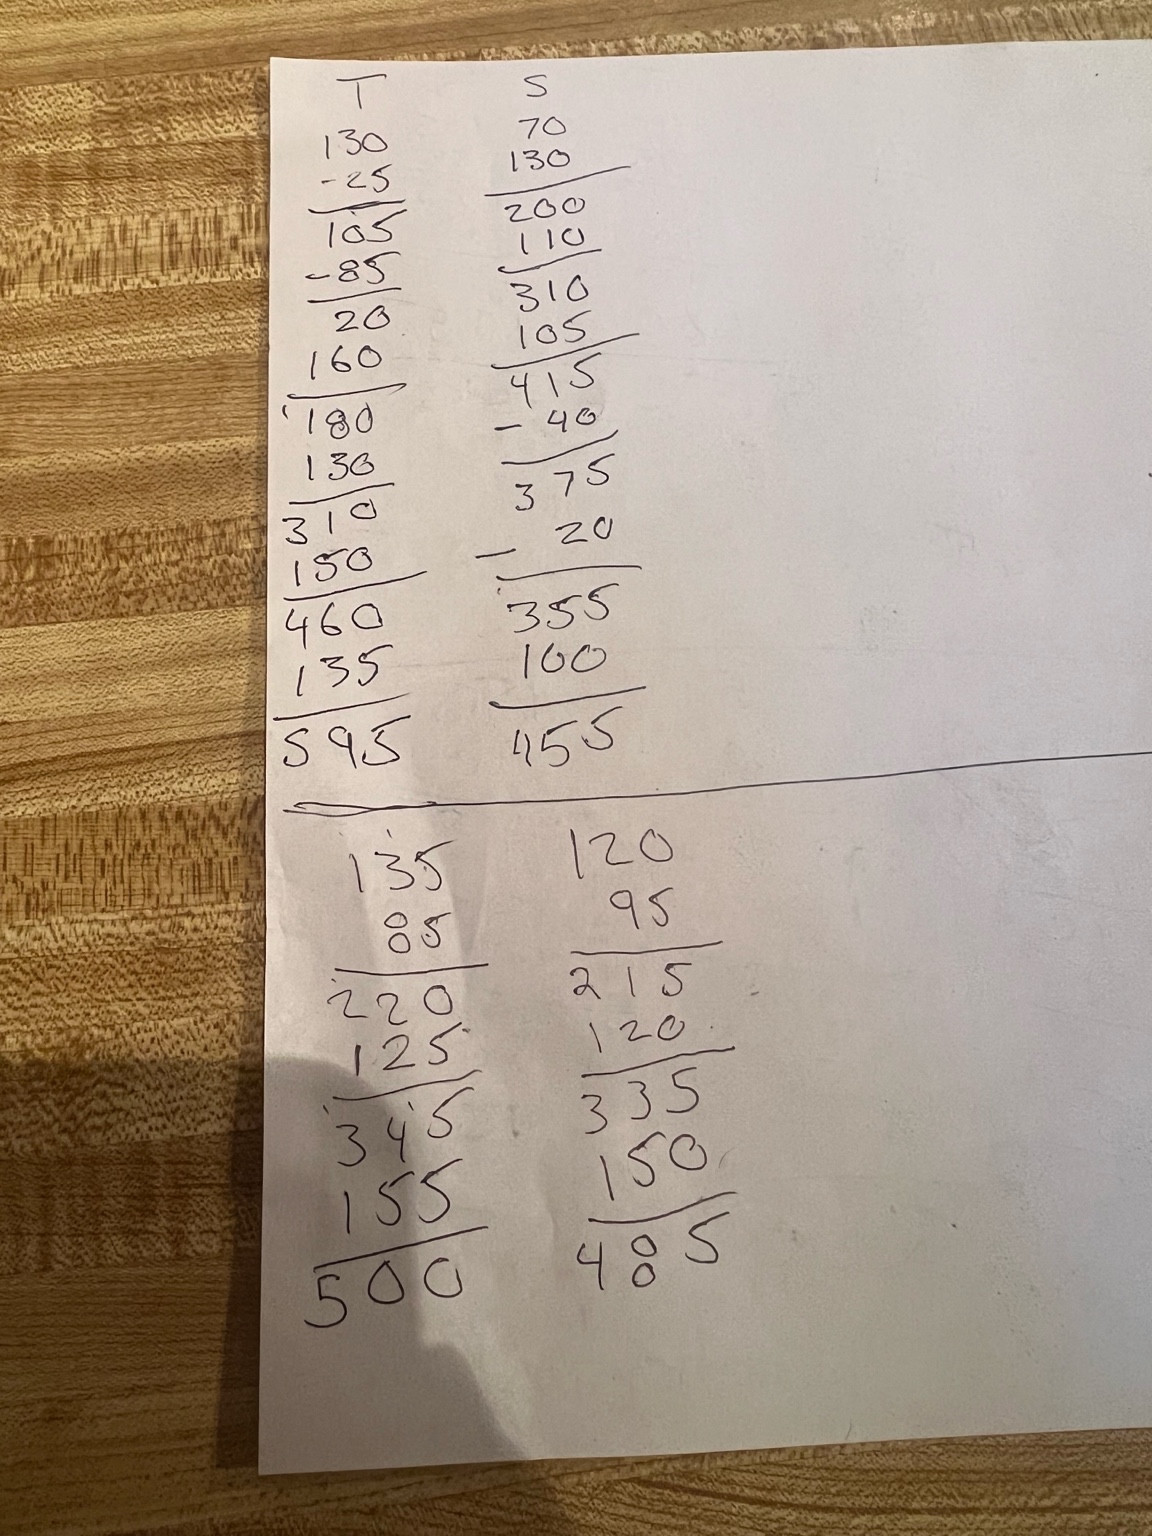 T
130
-25
105
-85
20
160
180
130
310
150
460
135
595
S
70
130
200
110
310
105
415
- 40
375
- 20
355
100
455
135
85
220
125
345
155
500
120
95
215
120
335
150
485